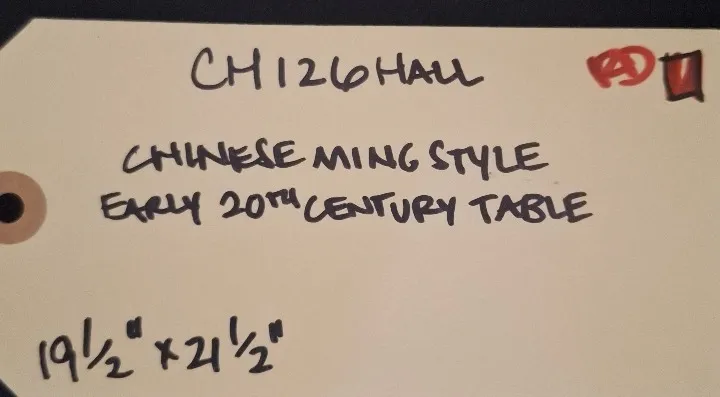 CH126HALL
CHINESE MING STYLE
EARLY 20TH CENTURY TABLE
19 1/2" x 21 1/2"